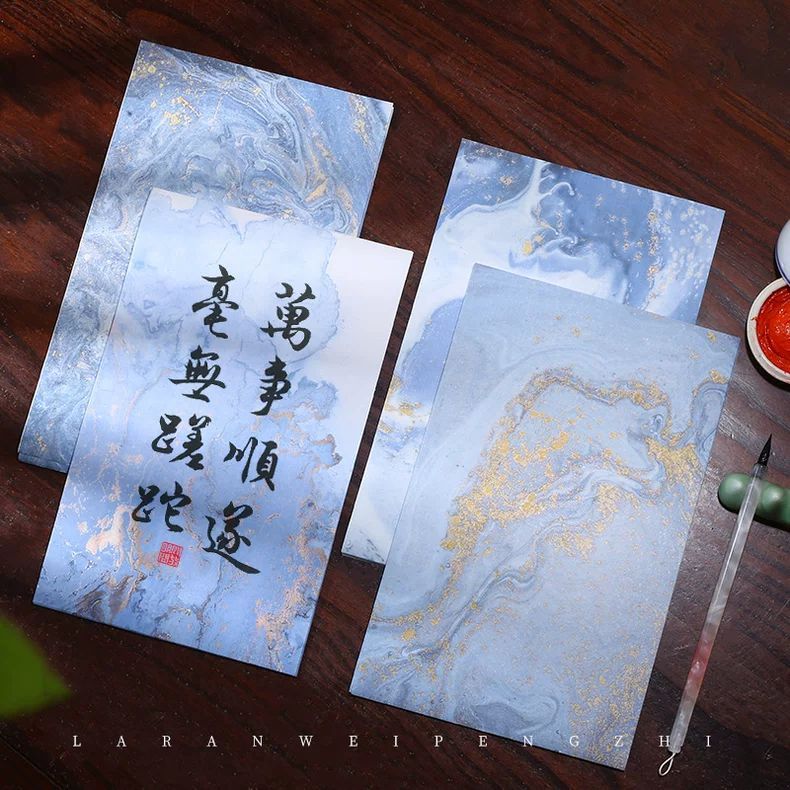 萬事順遂
毫無蹉跎
LARANWEIPENGZHI